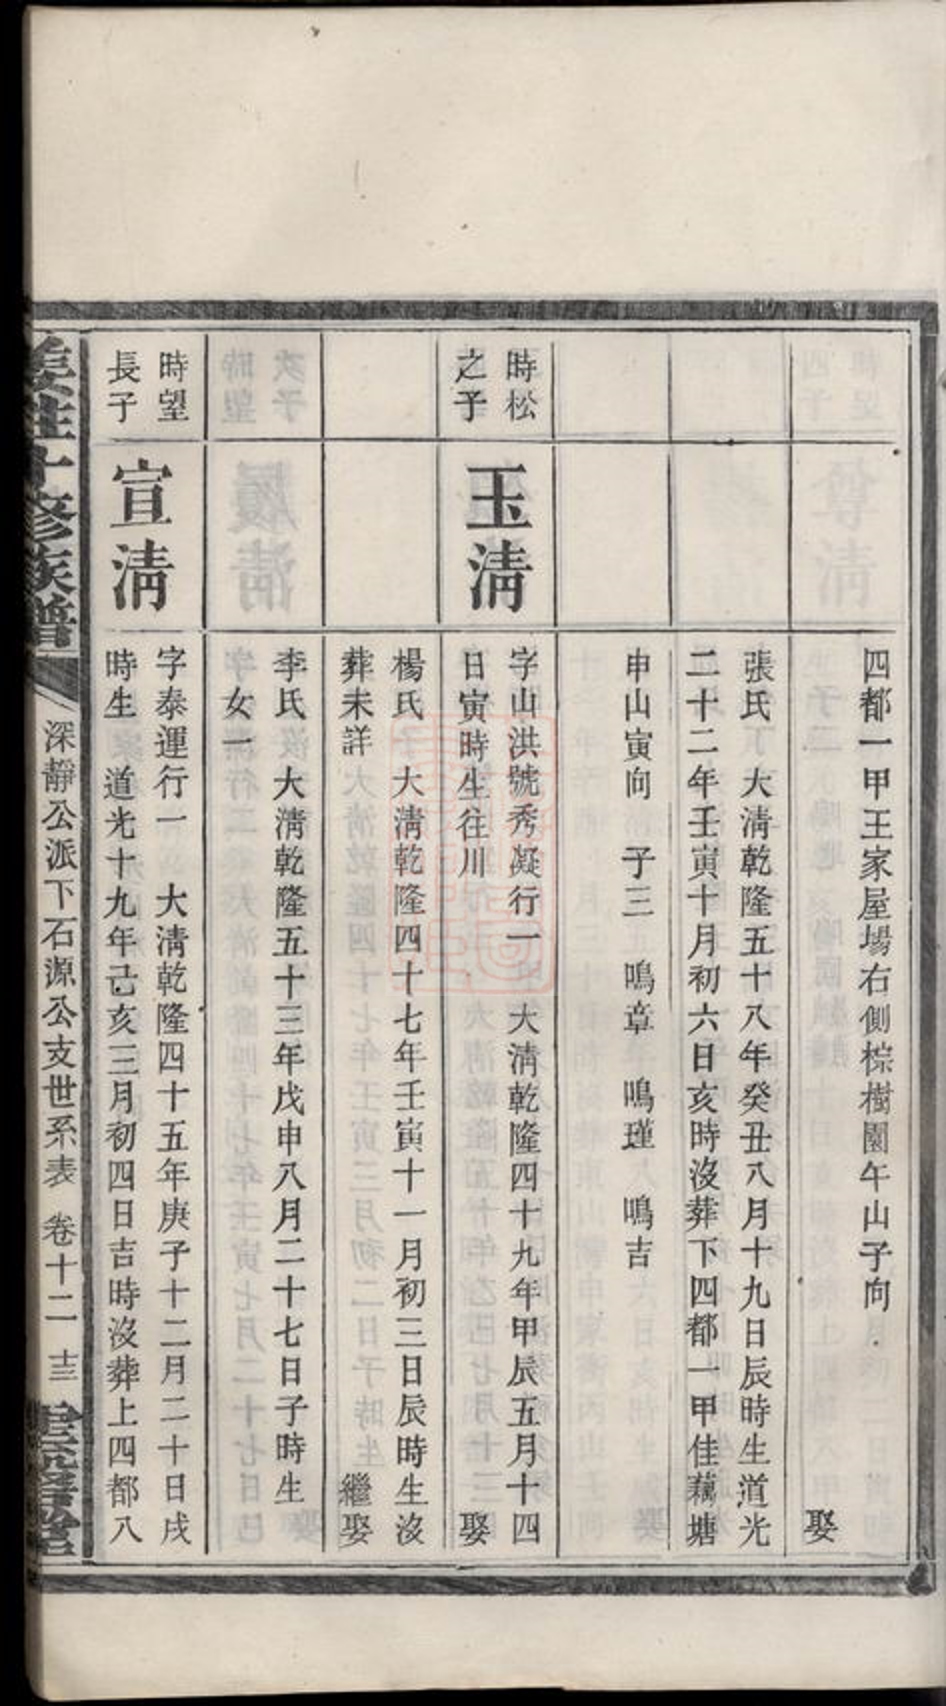 四都一甲王家屋場右側棕樹園午山子向
娶
張氏 大清乾隆五十八年癸丑八月十九日辰時生道光
二十二年壬寅十月初六日亥時沒葬下四都一甲佳藕塘
申山寅向 子三 鳴章 鳴瑾 鳴吉
時松
之子
玉清
字山洪號秀凝行一 大清乾隆四十九年甲辰五月十四
日寅時生往川 娶
楊氏 大清乾隆四十七年壬寅十一月初三日辰時生沒
葬未詳 繼娶
李氏 大清乾隆五十三年戊申八月二十七日子時生
女一
時望
長子
宣清
字泰運行一 大清乾隆四十五年庚子十二月二十日戌
時生 道光十九年己亥三月初四日吉時沒葬上四都八
姜姓十修族譜
深靜公派下石源公支世系表 卷十二 十三